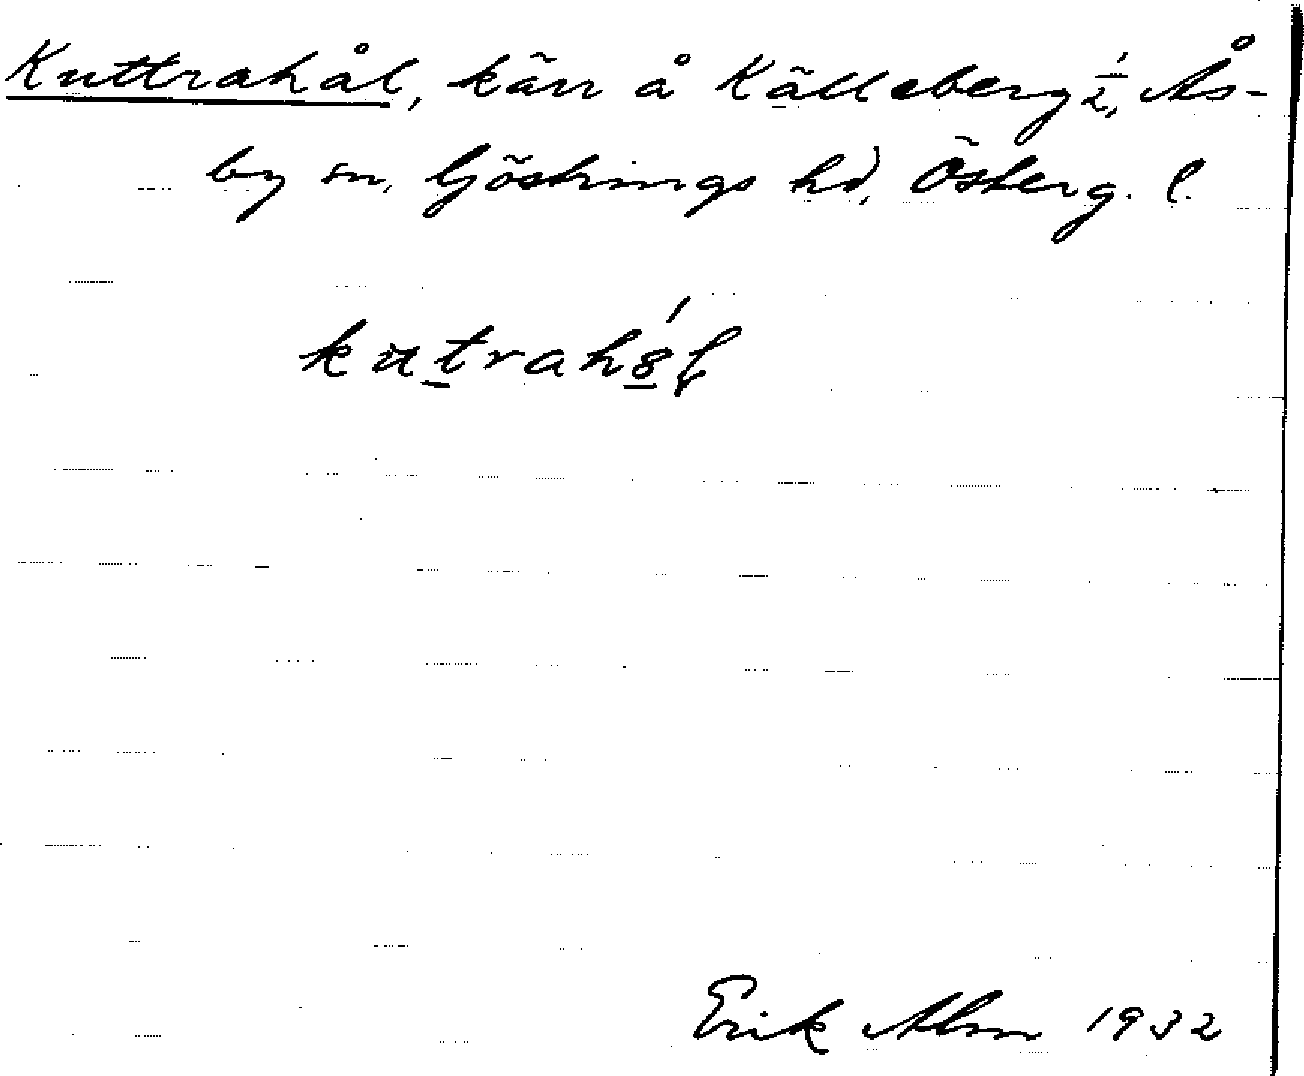 Kuttrahål, kärr å Källeberg 1/2, Ås-
by sn, Göstrings hd, Österg. l.
Erik Alm 1932